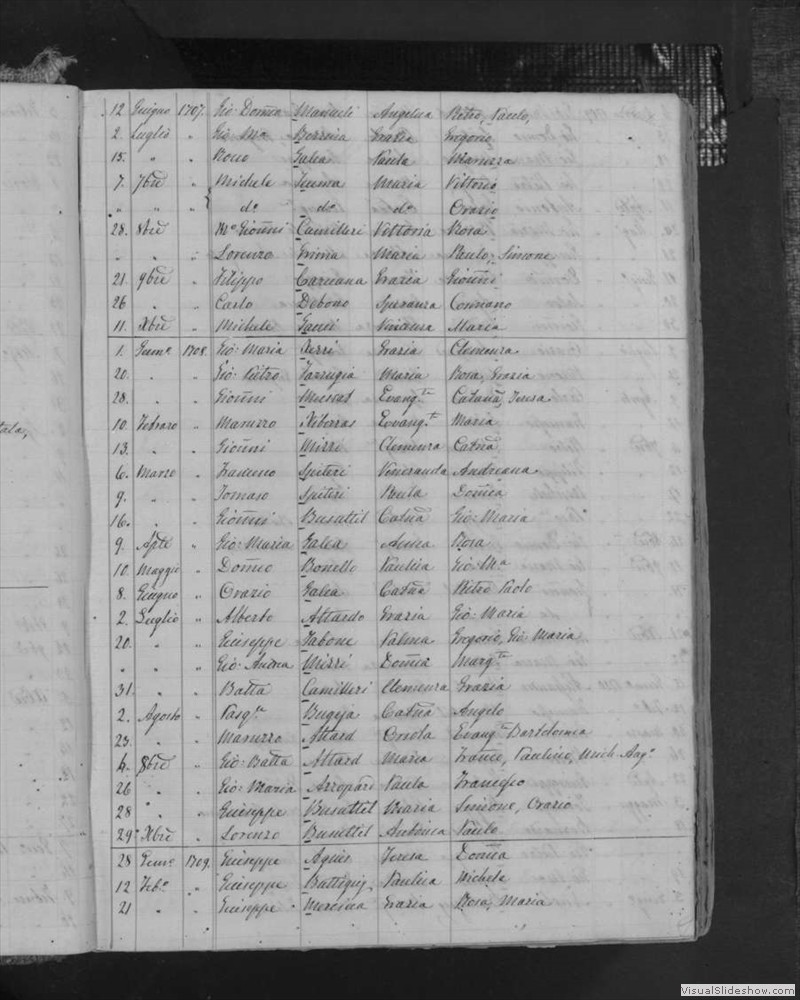 tala,
12 Guigno 1707. Gio: Domco Mamuli Angelica Pietro, Paulo,
2. Luglio " Gio: Ma Grazia Gregorio
15. " " Galea Paula
7. 7bre " Michele Maria Vittorio
" " " do do do Orazio
28. 8bre " Gioñni Camilleri Vittoria Rosa
" " " Lorenzo Grima Maria Paulo, Simone
21. 9bre " Filippo Caruana Grazia Gioñni
26 " " Carlo Debono Speranza Cosmano
11. Xbre " Michele Gauci Vincenza Maria
1. Genno 1708. Gio: Maria Grazia Clemenza
20. " " Gio: Pietro Farrugia Maria Rosa, Grazia
28. " " Gioñni Muscat Evangta Catña, Teresa
10. Febraro " Maruzzo Xiberras Evvangta Maria
13. " " Gioñni Mizzi Clemenza Catña
6. Marzo " Spiteri Veneranda Andreana
9. " " Tomaso Spiteri Paula Domca
16. " " Gioñni Busuttil Catña Gio: Maria
9. Aple " Gio: Maria Galea Anna Rosa
10. Maggio " Domco Bonello Paulica Gio: Ma
8. Giugno " Orazio Galea Catña Pietro Paolo
2. Luglio " Alberto Attardo Grazia Gio: Maria
20. " " Giuseppe Zabone Palma Gregorio, Gio: Maria
" " " Gio: Andrea Mizzi Domca Margta
31. " " Batta Camilleri Clemenza Grazia
2. Agosto " Pasqle Bugeja Catña Angelo
23. " " Maruzzo Attard Orsola Evangta Bartolomea
4. 8bre " Gio: Batta Attard Maria Franco, Paulino, Mich. Ango
26 " " Gio: Maria Azzopardi Paula Francesco
28 " " Giuseppe Busuttil Maria Simone, Orazio
29 Xbre " Lorenzo Busuttil Antonia Paulo
28 Genno 1709. Giuseppe Agius Teresa Domca
12 Febo " Giuseppe Buttigieg Paulica Michele
21 " " Giuseppe Mercieca Grazia Rosa, Maria
VisualSlideshow.com